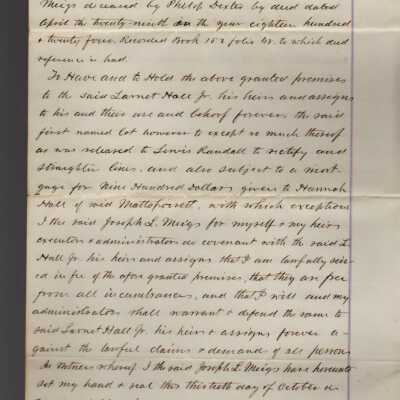 Meigs deceased by Philip Dexter by deed dated
April the twenty ninth in the year eighteen hundred
+ twenty four. Recorded Book 152 folio to which deed
reference is had.
To Have and to Hold the above granted premises
to the said Larnet Hall Jr. his heirs and assigns
to his and their use and behoof forever, the said
first named lot however to except so much thereof
as was released to Lewis Randall to rectify and
straighten lines, and also subject to a mort-
gage for Nine Hundred Dollars given to Hannah
Hall of said Mattapoisett, with which exceptions
I the said Joseph L. Meigs for myself + my heirs
executors + administrators do covenant with the said L
Hall Jr. his heirs and assigns that I am lawfully seiz-
ed in fee of the afore granted premises, that they are free
from all incumbrances, and that I will and my
administrators shall warrant + defend the same to
said Larnet Hall Jr. his heirs + assigns forever a-
gainst the lawful claims + demands of all persons
As witness whereof I the said Joseph L. Meigs have hereunto
set my hand + seal this thirtieth day of October in